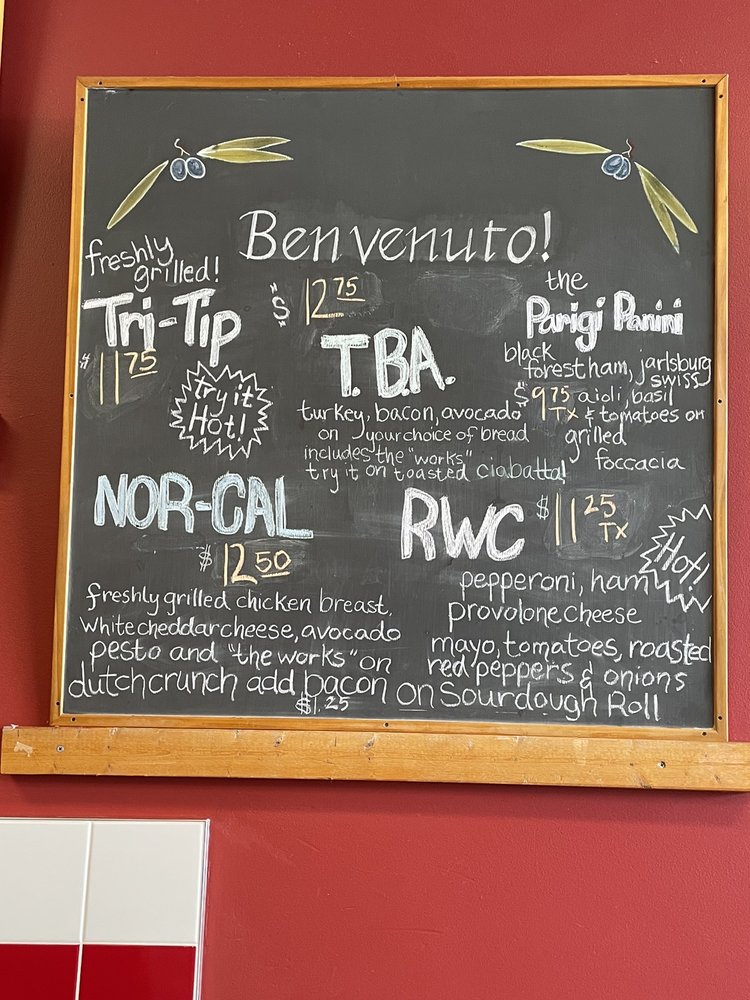 Benvenuto!
freshly
grilled!
Tri-Tip
$ 11 75
try it
Hot!
$ 12 75
T.B.A.
turkey, bacon, avocado
on your choice of bread
includes the "works"
try it on toasted ciabatta!
the
Parigi Panini
black
forest ham, jarlsburg
swiss
$ 9 75 aioli, basil
TX & tomatoes on
grilled
foccacia
NOR-CAL
$ 12 50
freshly grilled chicken breast,
white cheddar cheese, avocado
pesto and "the works" on
dutchcrunch add bacon
$1.25
RWC
$ 11 25
TX
Hot!
pepperoni, ham
provolone cheese
mayo, tomatoes, roasted
red peppers & onions
on Sourdough Roll